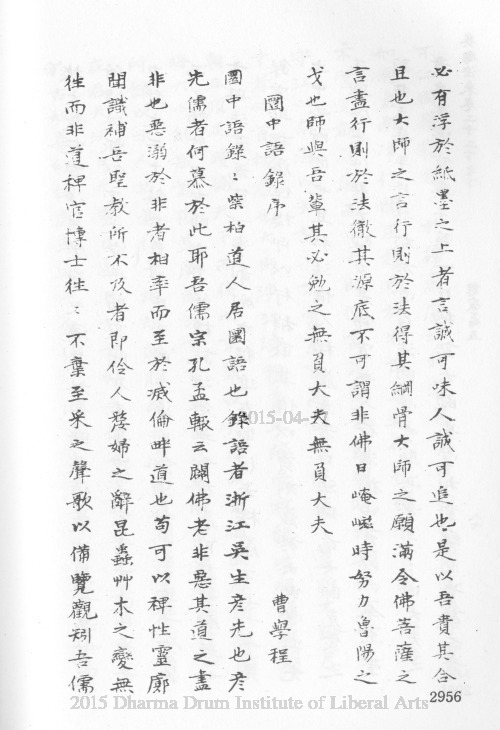 必有浮於紙墨之上者言誠可味人誠可追也是以吾貴其合
且也大師之言行則於法得其綱骨大師之願滿令佛菩薩之
言盡行則於法徹其源底不可謂非佛日崦嵫時努力魯陽之
戈也師與吾輩其必勉之無負大夫無負大夫
圜中語錄序
曹學程
圜中語錄:柴柏道人居圜語也錄語者浙江吳生彥先也彥
先儒者何慕於此耶吾儒宗孔孟輙云闢佛老非惡其道之盡
非也惡溺於非者相率而至於滅倫畔道也苟可以裨性靈廓
聞識補吾聖教所不及者即伶人嫠婦之辭昆蟲艸木之變無
往而非道稗官博士往:不棄至采之聲歌以備覽觀矧吾儒
2956
2015-04-27
2015 Dharma Drum Institute of Liberal Arts